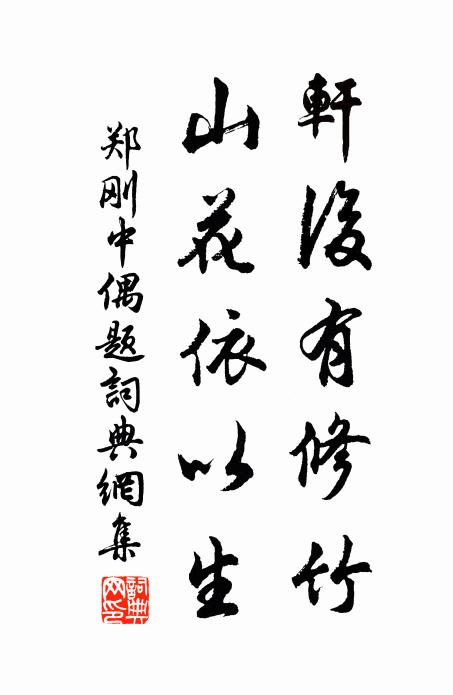 軒後有修竹
山花依以生
郑刚中偶题詞典網集
詞典網印